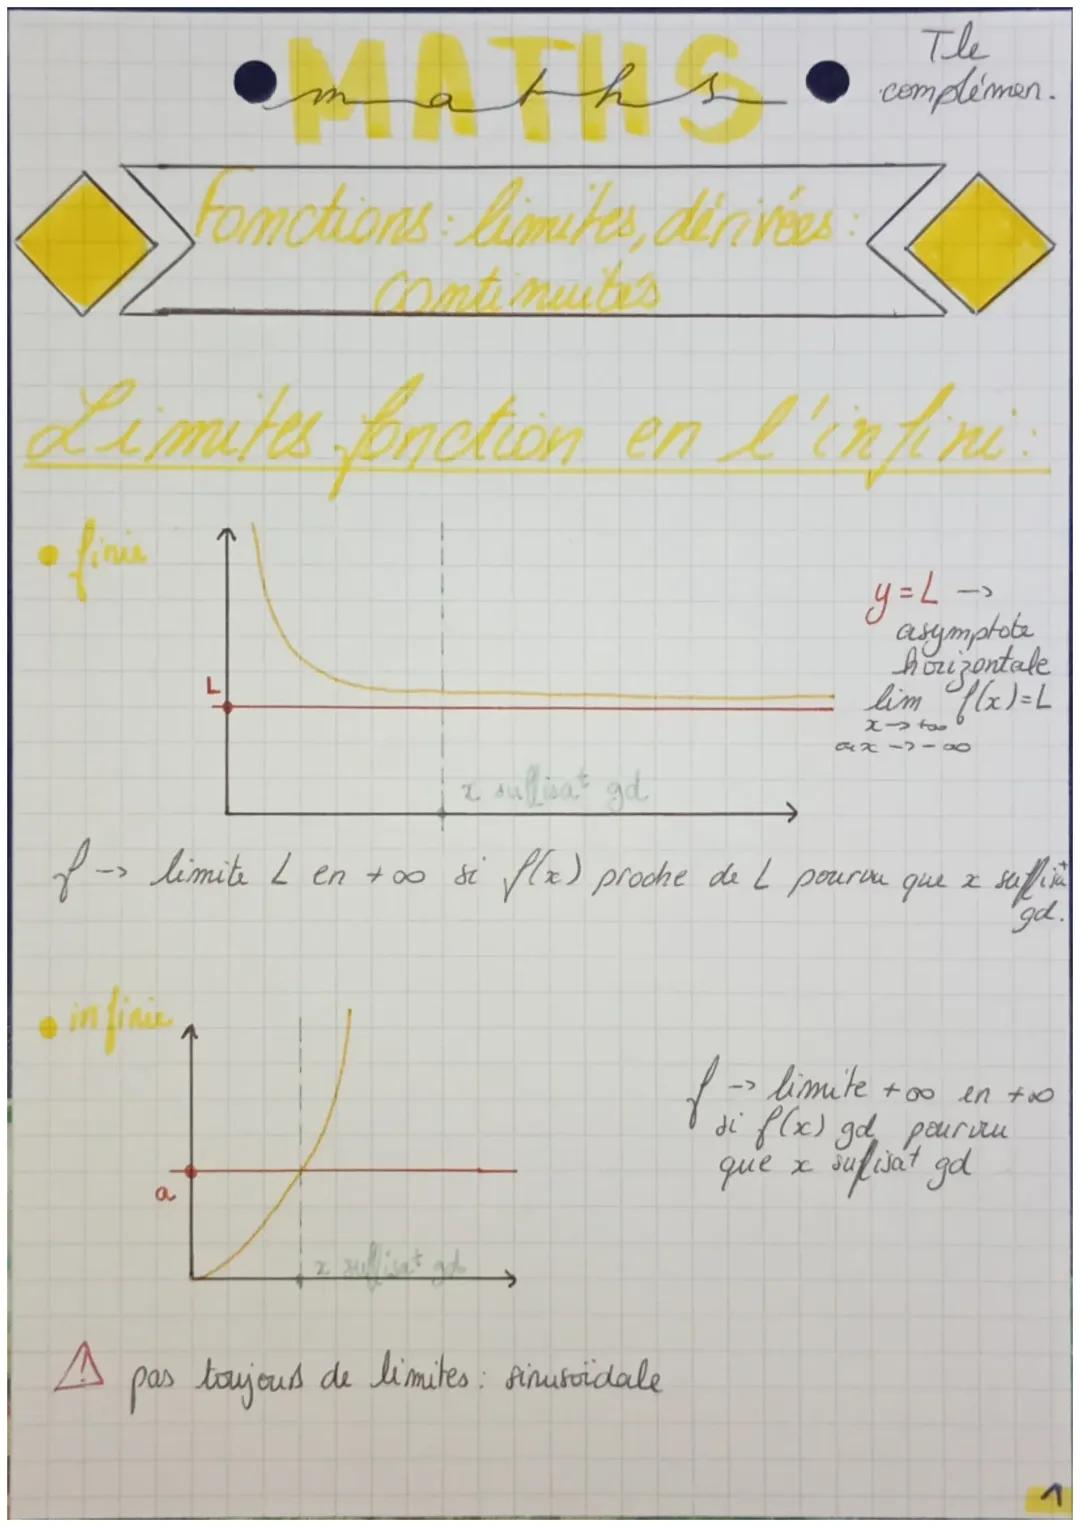 MATHS
maths
Tle
complémen.
Fonctions : limites, dérivées :
continuités
Limites fonction en l'infini :
finie
y = L ->
asymptote
horizontale
lim f(x) = L
x -> +∞
ou x -> -∞
L
x suffisat gd
f -> limite L en +∞ si f(x) proche de L pourvu que x suffisat
gd.
infinie
f -> limite +∞ en +∞
si f(x) gd pourvu
que x sufisat gd
a
x suffisat gd
⚠ pas toujours de limites : sinusoïdale
1